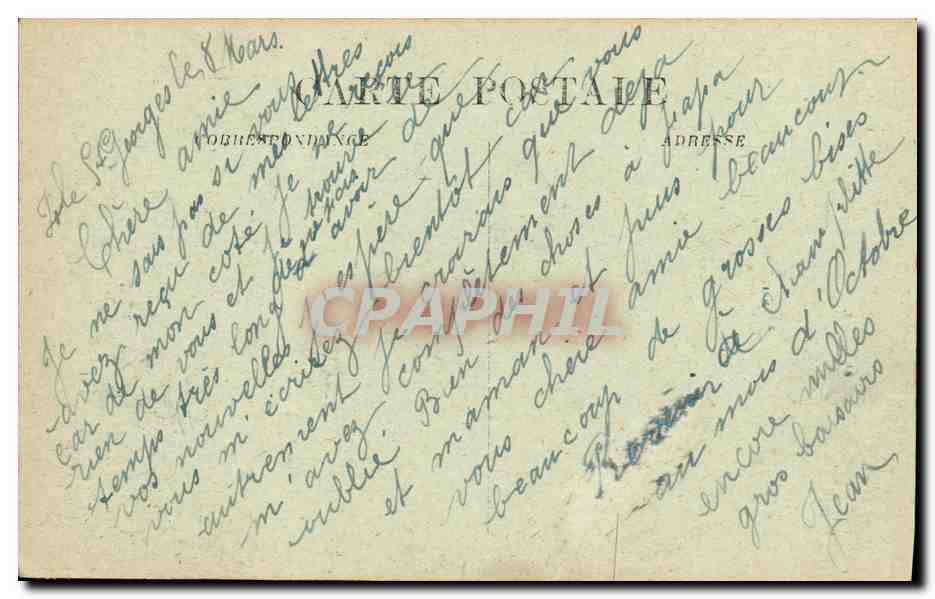 CARTE POSTALE
CORRESPONDANCE
ADRESSE
Isle St Georges le 8 Mars.
Chère amie
Je ne sais pas si vous
avez reçu de mes lettres
car de mon coté je ne reçois
rien de vous et je trouve
temps très long de
déjà
vos nouvelles
avoir
vous m'écrirez j'espère que
bientôt car
autrement je croirais que vous
m'avez complètement déja
oublié. Bien des choses à papa
et maman et puis pour
vous chère amie beaucoup.
beaucoup de grosses bises
de Champlitte
au mois d'Octobre
encore milles
gros baisers
Jean
CPARHIL